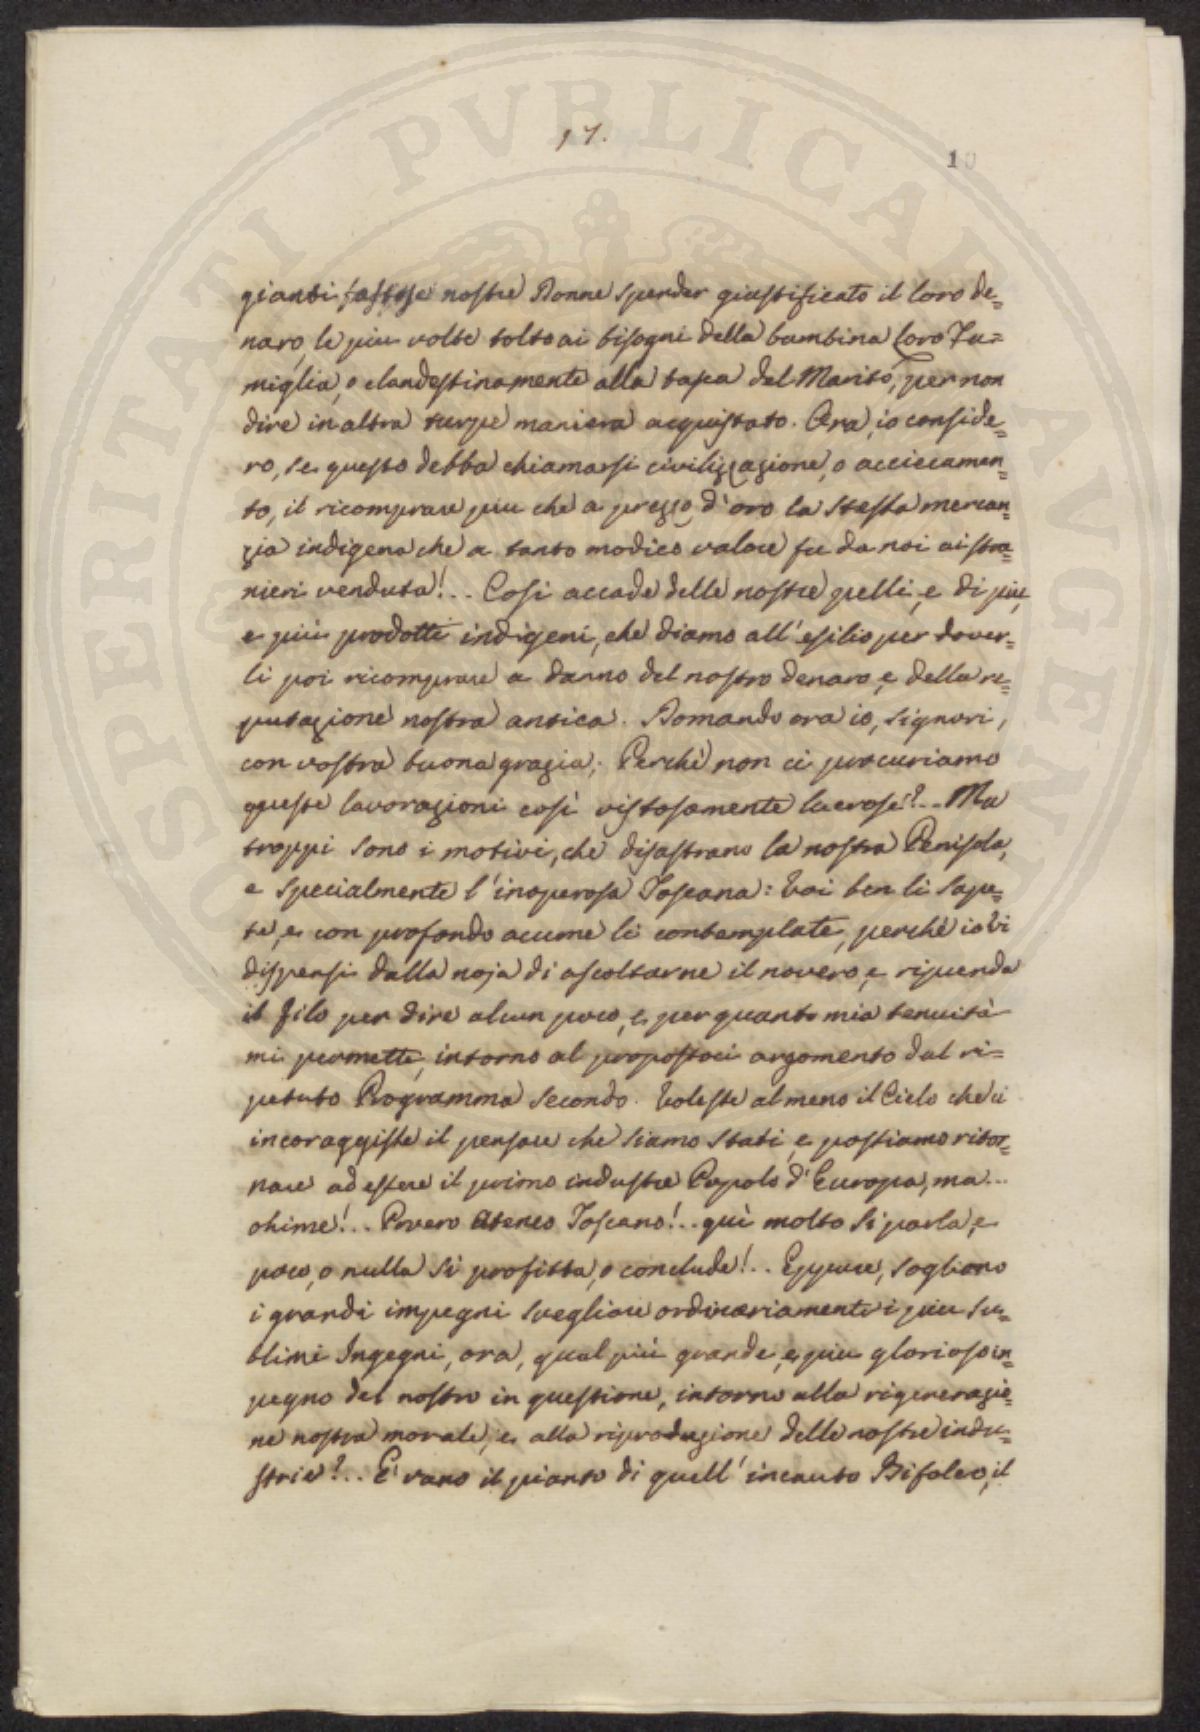 17.
10
gianti fastose nostre Donne spender giustificato il loro de=
naro, le piu volte tolto ai bisogni della bambina loro Fa=
miglia, o clandestinamente alla tasca del Marito, per non
dire in altra turpe maniera acquistato. Ora, io conside=
ro, se questo debba chiamarsi civilizzazione, o acciecamen=
to, il ricomprare piu che a prezzo d'oro la stessa mercan=
zia indigena che a tanto modico valore fu da noi ai stra=
nieri venduta!.. Così accade delle nostre pelli, e di più,
e più prodotti indigeni, che diamo all'esilio per dover=
li poi ricomprare a danno del nostro denaro, e della re=
putazione nostra antica. Domando ora io, Signori,
con vostra buona grazia; Perchè non ci procuriamo
queste lavorazioni così vistosamente lucrose?.. Ma
troppi sono i motivi, che disastrano la nostra Penisola,
e specialmente l'inoperosa Toscana: Voi ben li sape=
te, e con profondo acume li contemplate, perchè io Vi
dispensi dalla noja di ascoltarne il novero, e riprenda
il filo per dire alcun poco, e per quanto mia tenuità
mi permette, intorno al propostoci argomento dal ri=
petuto Programma secondo. Voleste almeno il Cielo che ci
incoraggisse il pensare che siamo stati, e possiamo ritor=
nare ad essere il primo industre Popolo d'Europa, ma...
ohime!.. Povero Ateneo Toscano!.. quì molto si parla, e
poco, o nulla si profitta, o conclude!.. Eppure, sogliono
i grandi impegni svegliare ordinariamente i piu su=
blimi Ingegni, ora, qual più grande, e piu glorioso im=
pegno del nostro in questione, intorno alla rigenerazio=
ne nostra morale, e alla riproduzione delle nostre indu=
strie?.. E' vano il pianto di quell'incauto Bifolco, il
SPERITATI PVBLICAE AVGEN